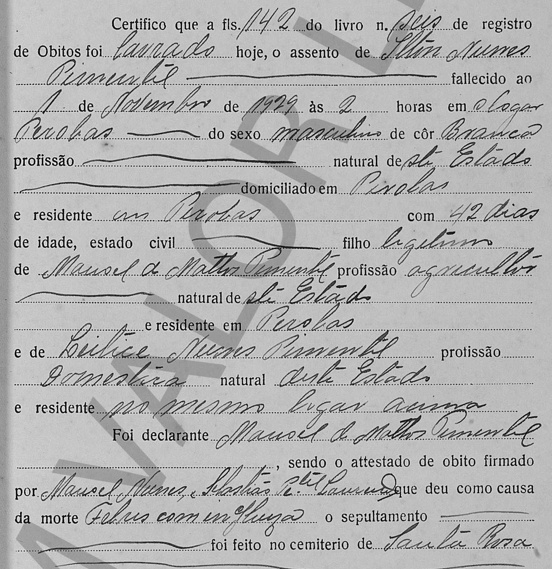 Certifico que a fls. 142 do livro n. seis de registro
de Obitos foi lavrado hoje, o assento de Nunes
Pimentel fallecido ao
1 de Novembro de 1929 às 2 horas em o logar
Perobas do sexo masculino de côr Branca
profissão natural de ste Estado
domiciliado em Perobas
e residente em Perobas com 42 dias
de idade, estado civil filho legitimo
de Manoel de Mattos Pimentel profissão agricultor
natural de ste Estado
e residente em Perobas
e de Nunes Pimentel profissão
Domestica natural deste Estado
e residente no mesmo logar acima
Foi declarante Manoel de Mattos Pimentel
, sendo o attestado de obito firmado
por Manoel Nunes, que deu como causa
da morte Febres com o sepultamento
foi feito no cemiterio de Santa Rosa
VALOR